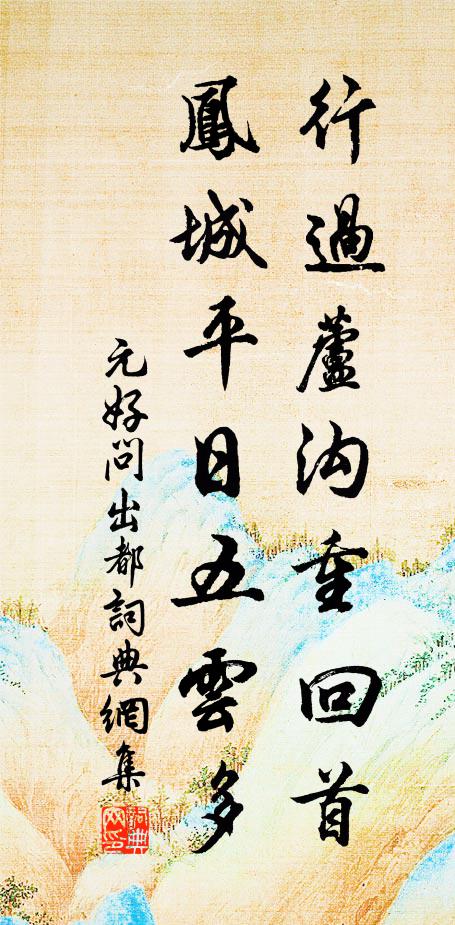 行過蘆溝重回首
鳳城平日五雲多
元好問出都詞典網集
詞典網印